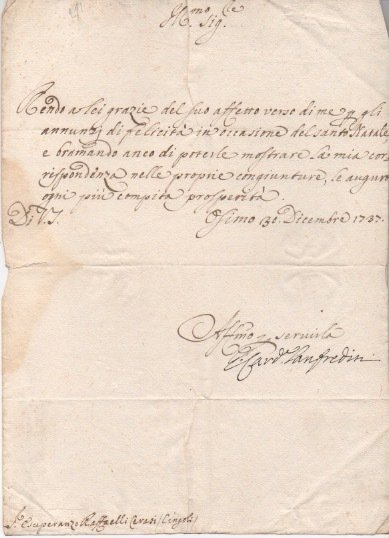 M.to Ill.re Sig.re
Rendo a lei grazie del suo affetto verso di me p gli
annunzj di felicità in occasione del santo Natale
e bramando anco di poterle mostrare la mia cor
rispondenza nelle proprie congiunture, le auguro
ogni più compita prosperità.
Di V.S. Osimo 30. Dicembre 1737.
Affmo p servirla
Card. Lanfredini
S.r Esuperanzo Raffaelli Cavasi (Cingoli)